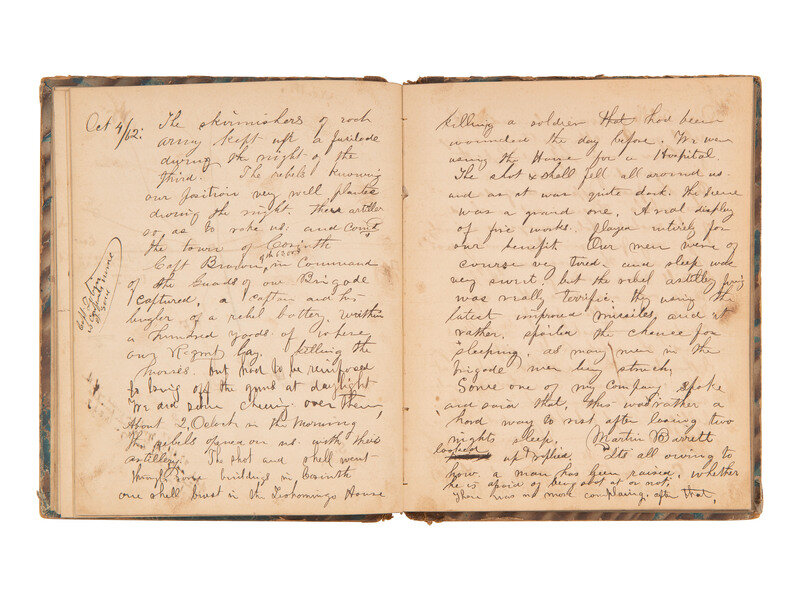 Oct 4/62:
The skirmishers of each
army kept up a fusilade
during the night of the
third. The rebels knowing
our position very well planted
during the night. there artillery
so, as to rake us. and
the town of Corinth
Capt Brown, in Command
of the Guards of our Brigade
captured, a captain and his
bugler of a rebel battery. within
a hundred yards of where
our Regmt lay. killing the
horses. but had to be reinforced
to bring off the guns at daylight
We did some cheering over them,
About 2 Oclock in the morning
the rebels opened on us. with there
artillery. The shot and shell went
through some buildings in Corinth
one shell burst in the Tishomingo House
killing a soldier that had been
wounded the day before. We were
using the House for a Hospital.
The shot & shell fell all around us.
and as it was quite dark. the scene
was a grand one. A real display
of fire works. played entirely for
our benefit. Our men were of
course very tired. and sleep was
very sweet. but the rebel artillery firing
was really terrific. they using the
latest improved missiles, and it
rather, spoiled the chance for
sleeping. as many men in the
brigade were being struck.
Some one of my company, spoke
and said that, this was rather a
hard way to rest after loosing two
nights sleep. Martin Barrett
looked up & replied, "Its all owing to
how. a man has been raised, whether
he is afraid of being shot at or not.
There was no more complaining, after that,